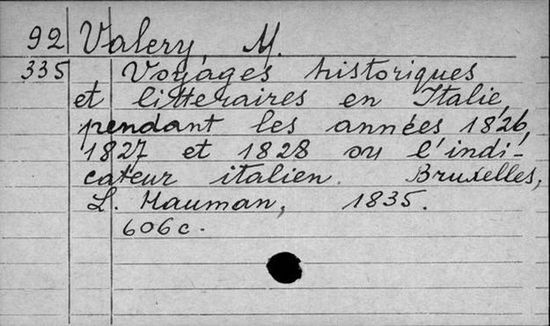 92 Valery, M.
335 Voyages historiques
et litteraires en Italie,
pendant les années 1826,
1827 et 1828 ou l'indi-
cateur italien. Bruxelles,
L. Hauman, 1835.
606 c.